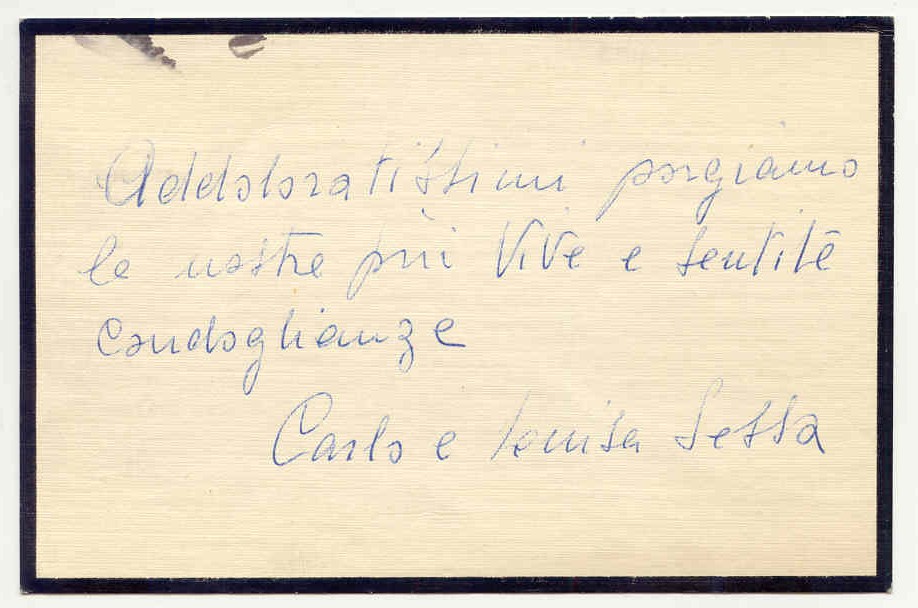 Addoloratissimi porgiamo
le nostre più vive e sentite
condoglianze
Carlo e Luisa Sessa